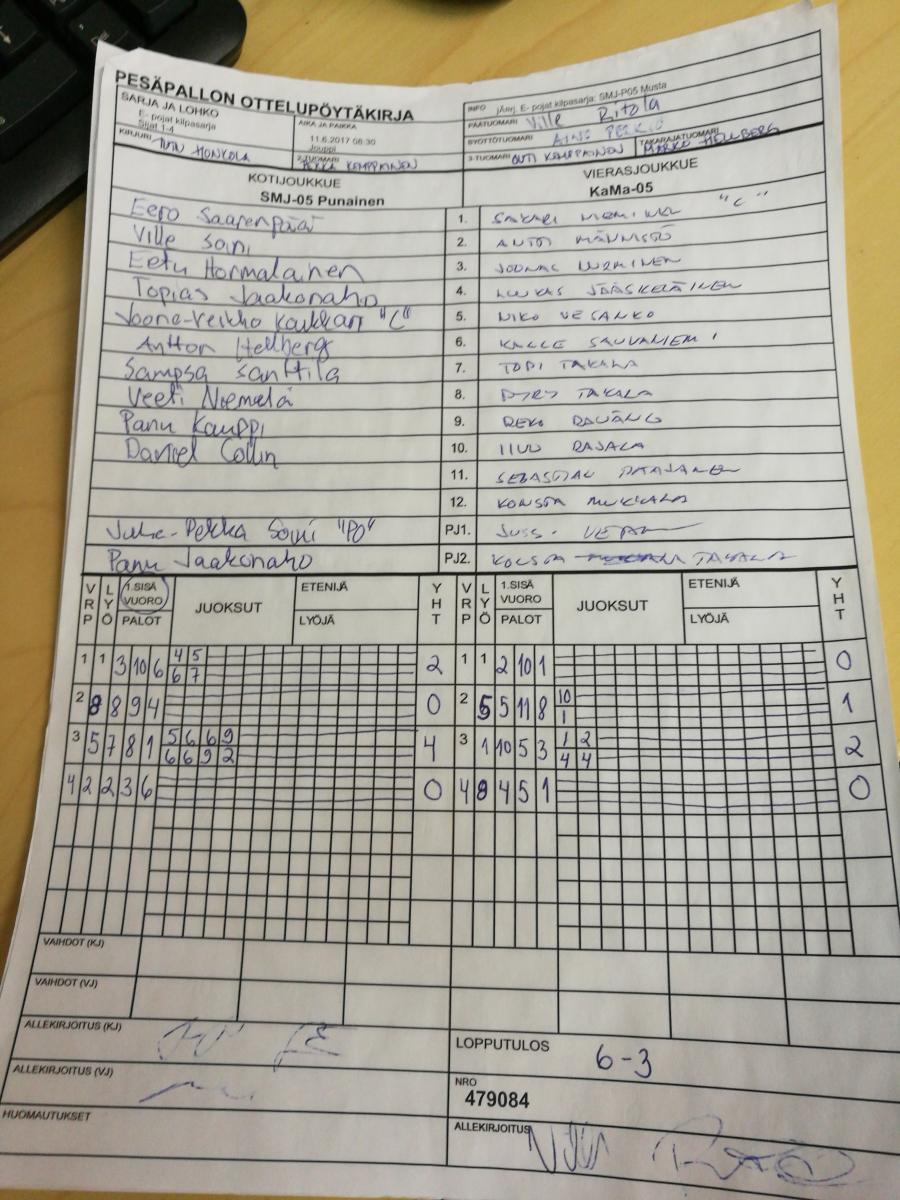 PESÄPALLON OTTELUPÖYTÄKIRJA
SARJA JA LOHKO
E- pojat kilpasarja
Sijat 1-4
AIKA JA PAIKKA
11.6.2017 08:30
Jouppi
INFO jÄrrj. E- pojat kilpasarja: SMJ-P05 Musta
PÄÄTUOMARI Ville Ritola
SYÖTTÖTUOMARI
TAKARAJATUOMARI MARKO HELLBERG
KIRJURI TUTU HONKOLA
2-TUOMARI PEKKA KEMPPAINEN
3-TUOMARI OUTI KEMPPAINEN
KOTIJOUKKUE
SMJ-05 Punainen
VIERASJOUKKUE
KaMa-05
Eero Saarenpää 1. SAKARI NIEMINEN "C"
Ville Soini 2. ANTTI MÄNNISTÖ
Eetu Hormalainen 3. JOONAS NURMINEN
Topias Jaakonaho 4. LUUKAS JÄÄSKELÄINEN
Joona-Veikko Kaukkari "C" 5. NIKO VESANKO
Antton Hellberg 6. KALLE SAUVANIEMI
Sampsa Santtila 7. TOPI TAKALA
Veeti Niemelä 8. TAKALA
Panu Kauppi 9.
Daniel Collin 10. IIVO RAJALA
11. SEBASTIAN PAAJANEN
12. KONSTA MUKKALA
Juha-Pekka Soini "PO" PJ1. JUSSI
Panu Jaakonaho PJ2. TAKALA
VRP LYÖ 1.SISÄ VUORO PALOT JUOKSUT ETENIJÄ LYÖJÄ YHT VRP LYÖ 1.SISÄ VUORO PALOT JUOKSUT ETENIJÄ LYÖJÄ YHT
1 1 3 10 6 4 5 2 1 1 2 10 1 0
6 7
2 8 8 9 4 0 2 5 5 11 8 10 1
1
3 5 7 8 1 5 6 6 9 4 3 1 10 5 3 1 2 2
6 6 9 2 4 4
4 2 2 3 6 0 4 9 4 5 1 0
VAIHDOT (KJ)
VAIHDOT (VJ)
ALLEKIRJOITUS (KJ)
LOPPUTULOS 6-3
ALLEKIRJOITUS (VJ)
NRO
479084
HUOMAUTUKSET
ALLEKIRJOITUS